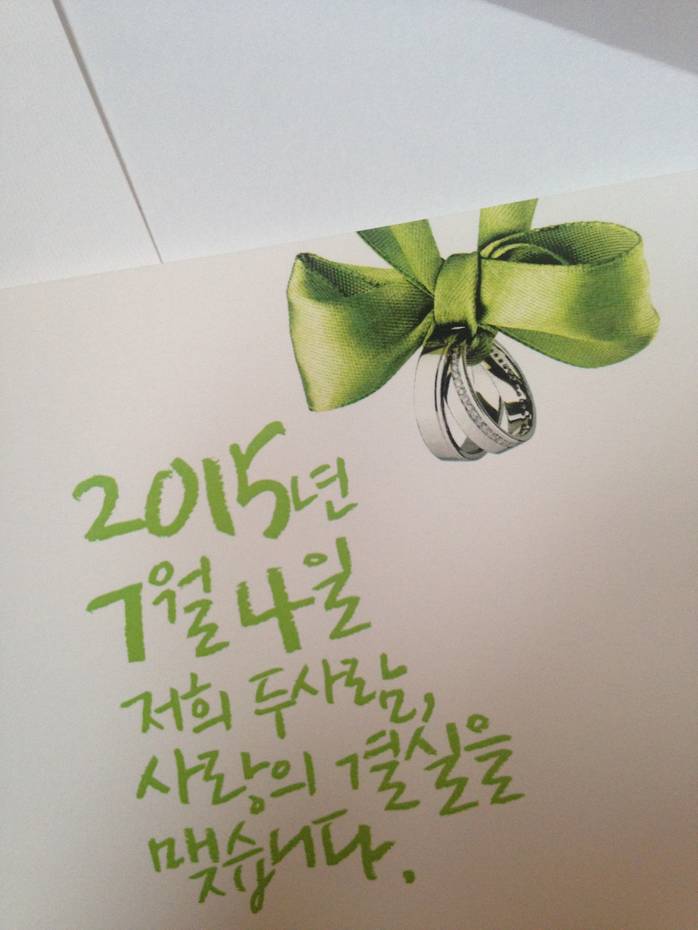 2015년
7월 4일
저희 두사람,
사랑의 결실을
맺습니다.